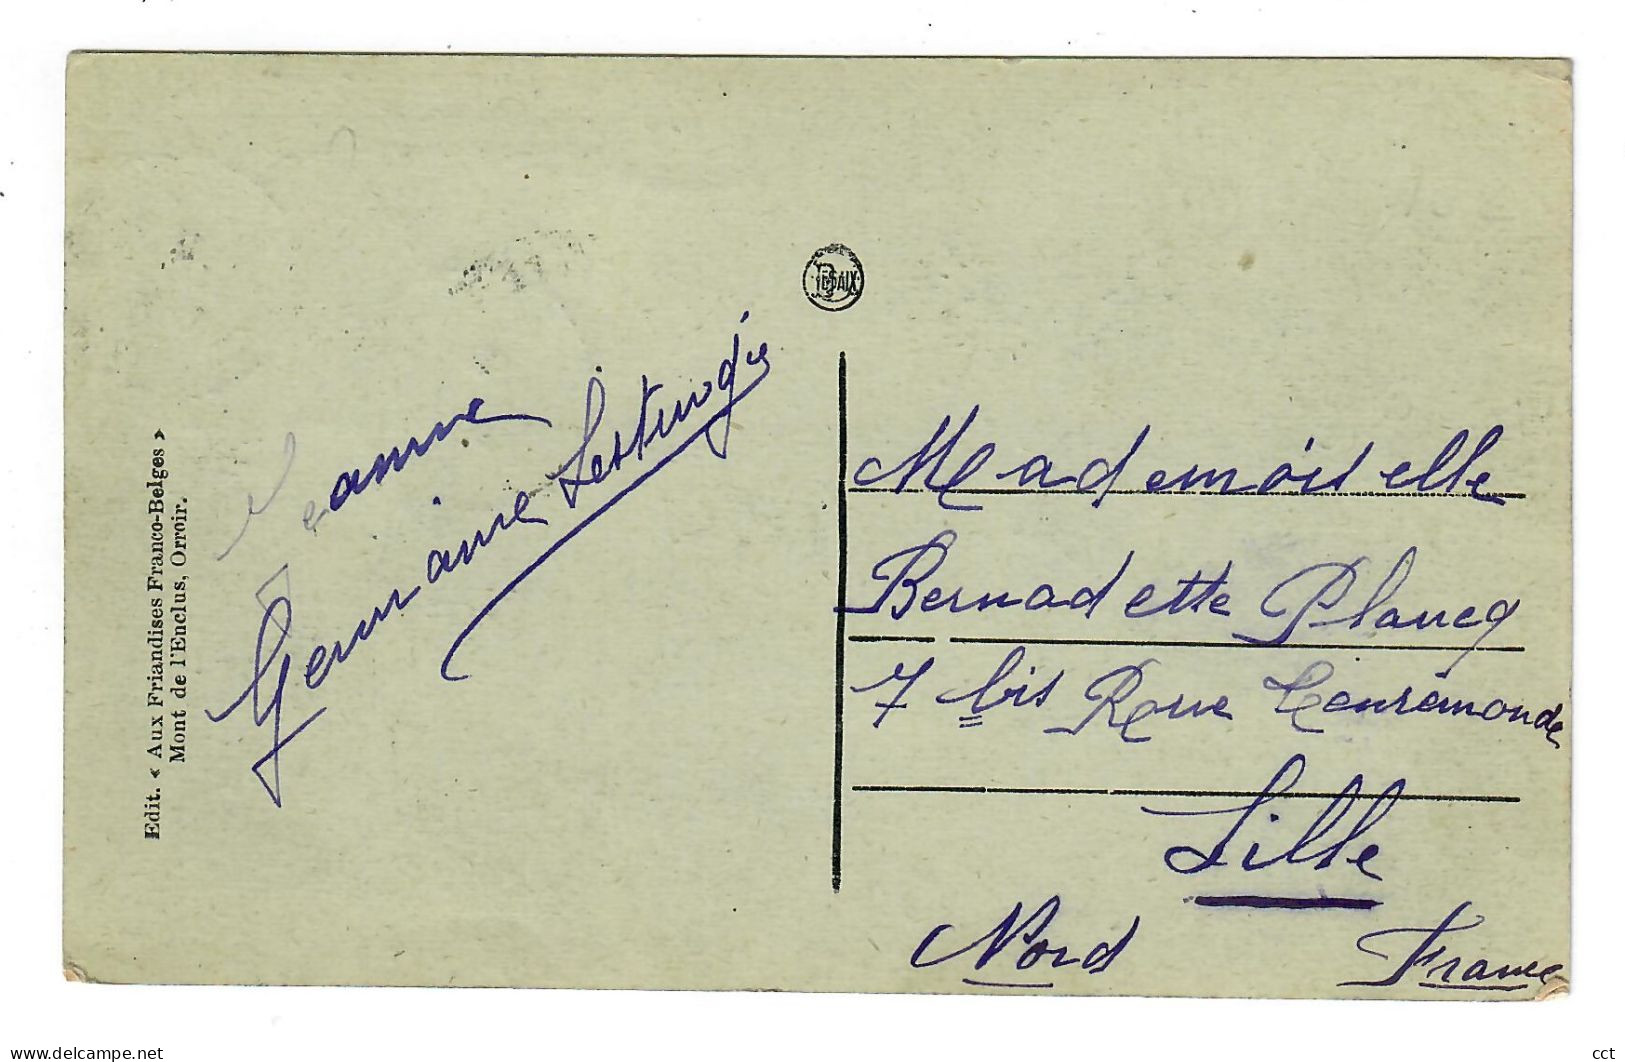 Edit. « Aux Friandises Franco-Belges »
Mont de l'Enclus, Orroir.
Jeanne
Germaine Lestur
DESAIX
Mademoiselle
Bernadette Plancq
7 bis Rue
Lille
Nord France
delcampe.net
cct